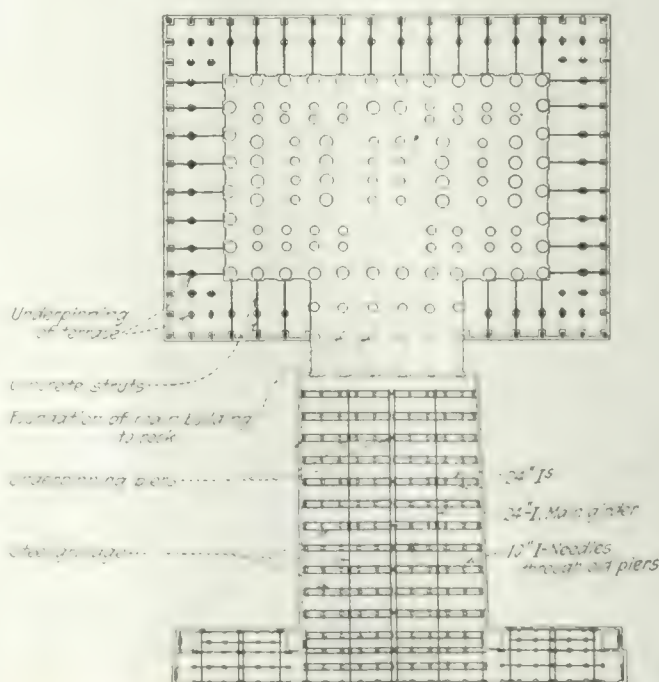 Underpinning
of terrace
Concrete struts
Foundation of main building
to rock
Underpinning piers
Steel grillage
24" Is
24"-I, Main girder
12" I-Needles
through old piers